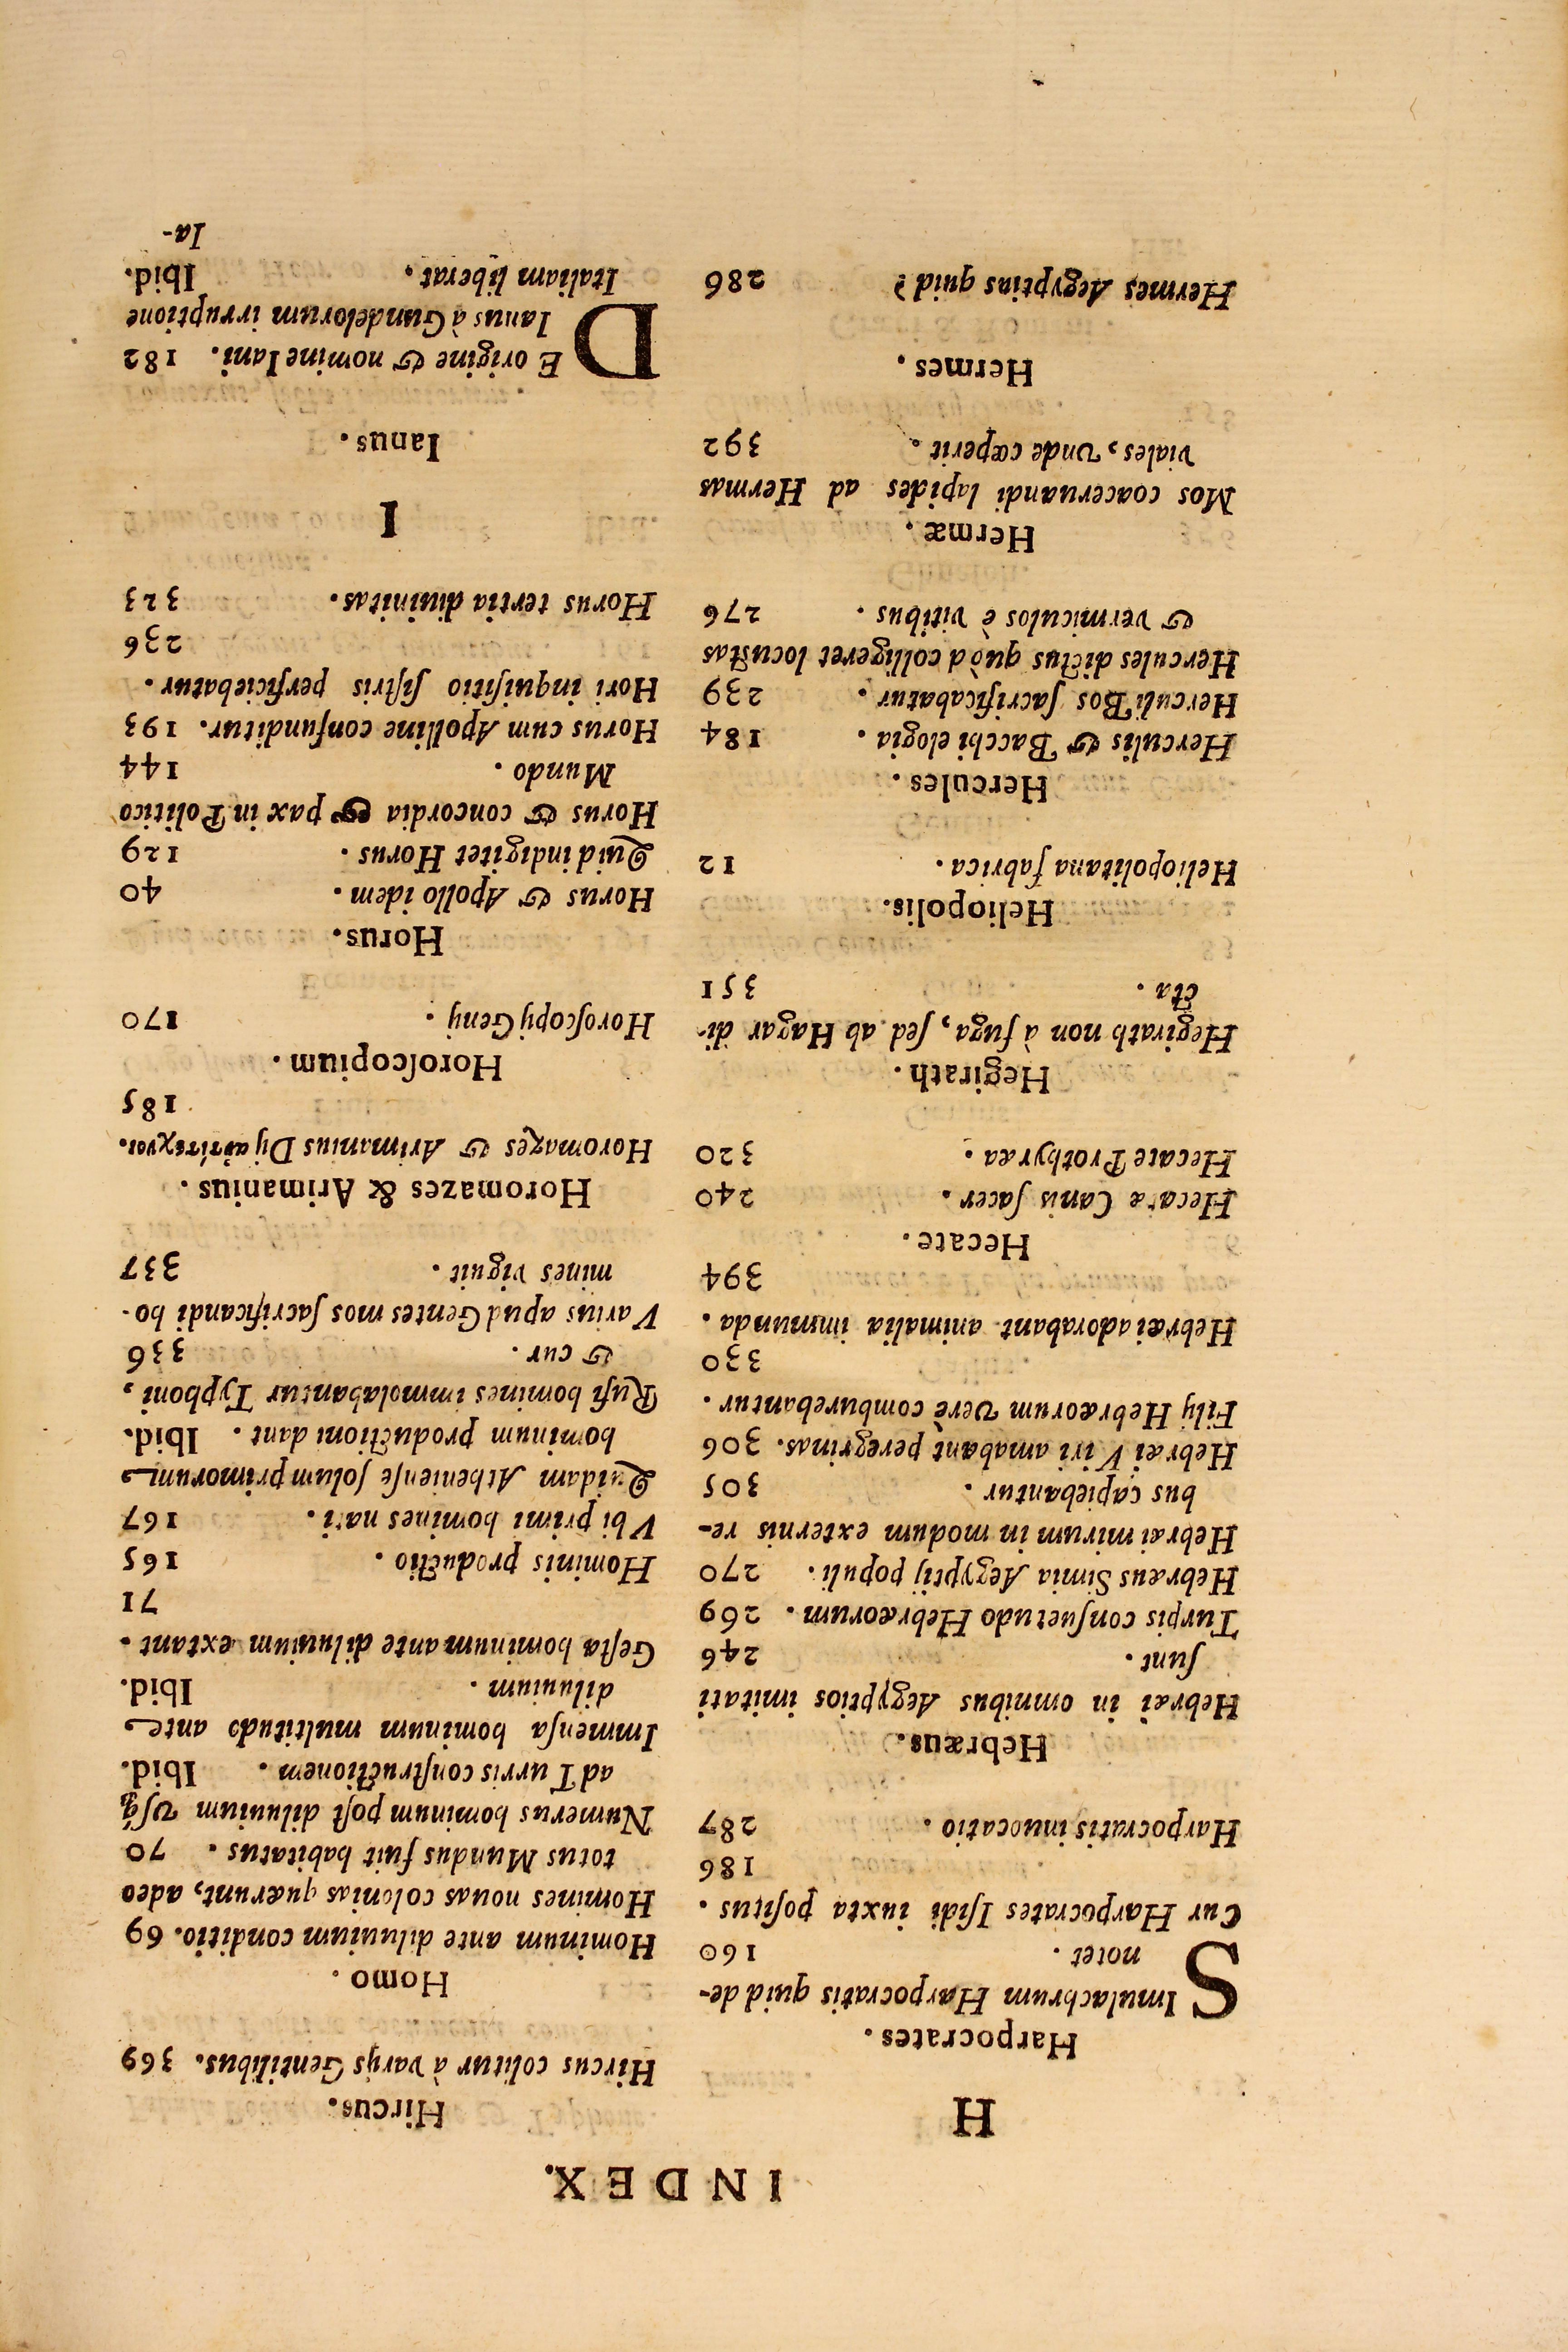 INDEX.
H
Harpocrates.
SImulachrum Harpocratis quid de-
notet. 160
Cur Harpocrates Isidi iuxta positus.
186
Harpocratis inuocatio. 287
Hebræus.
Hebræi in omnibus Aegyptios imitati
sunt. 246
Turpis consuetudo Hebræorum. 269
Hebræus Simia Aegyptij populi. 270
Hebræi mirum in modum externis re-
bus capiebantur. 305
Hebræi Viri amabant peregrinas. 306
Filij Hebræorum verè comburebantur.
330
Hebræi adorabant animalia immunda.
394
Hecate.
Hecatæ Canis sacer. 240
Hecate Prothyræa. 320
Hegirath.
Hegirath non à fuga, sed ab Hagar di-
cta. 351
Heliopolis.
Heliopolitana fabrica. 12
Hercules.
Herculis & Bacchi elogia. 184
Herculi Bos sacrificabatur. 239
Hercules dictus quòd colligeret locustas
& vermiculos è vitibus. 276
Hermæ.
Mos coaceruandi lapides ad Hermas
viales, vnde cœperit. 392
Hermes.
Hermes Aegyptius quid? 286
Hircus.
Hircus colitur à varijs Gentilibus. 369
Homo.
Hominum ante diluuium conditio. 69
Homines nouas colonias quærunt, adeo
totus Mundus fuit habitatus. 70
Numerus hominum post diluuium vsq́
ad Turris constructionem. Ibid.
Immensa hominum multitudo ante
diluuium. Ibid.
Gesta hominum ante diluuium extant.
71
Hominis productio. 165
Vbi primi homines nati. 167
Quidam Atheniense solum primorum
hominum productioni dant. Ibid.
Rufi homines immolabantur Typhoni,
& cur. 336
Varius apud Gentes mos sacrificandi ho-
mines viguit. 337
Horomazes & Arimanius.
Horomazes & Arimanius Dij ἀντίτεχνοι.
185
Horoscopium.
Horoscopij Genij. 170
Horus.
Horus & Apollo idem. 40
Quid indigitet Horus. 129
Horus & concordia & pax in Politico
Mundo. 144
Horus cum Apolline confunditur. 193
Hori inquisitio sistris perficiebatur.
236
Horus tertia diuinitas. 323
I
Ianus.
DE origine & nomine Iani. 182
Ianus à Gandelorum irruptione
Italiam liberat. Ibid.
Ia-